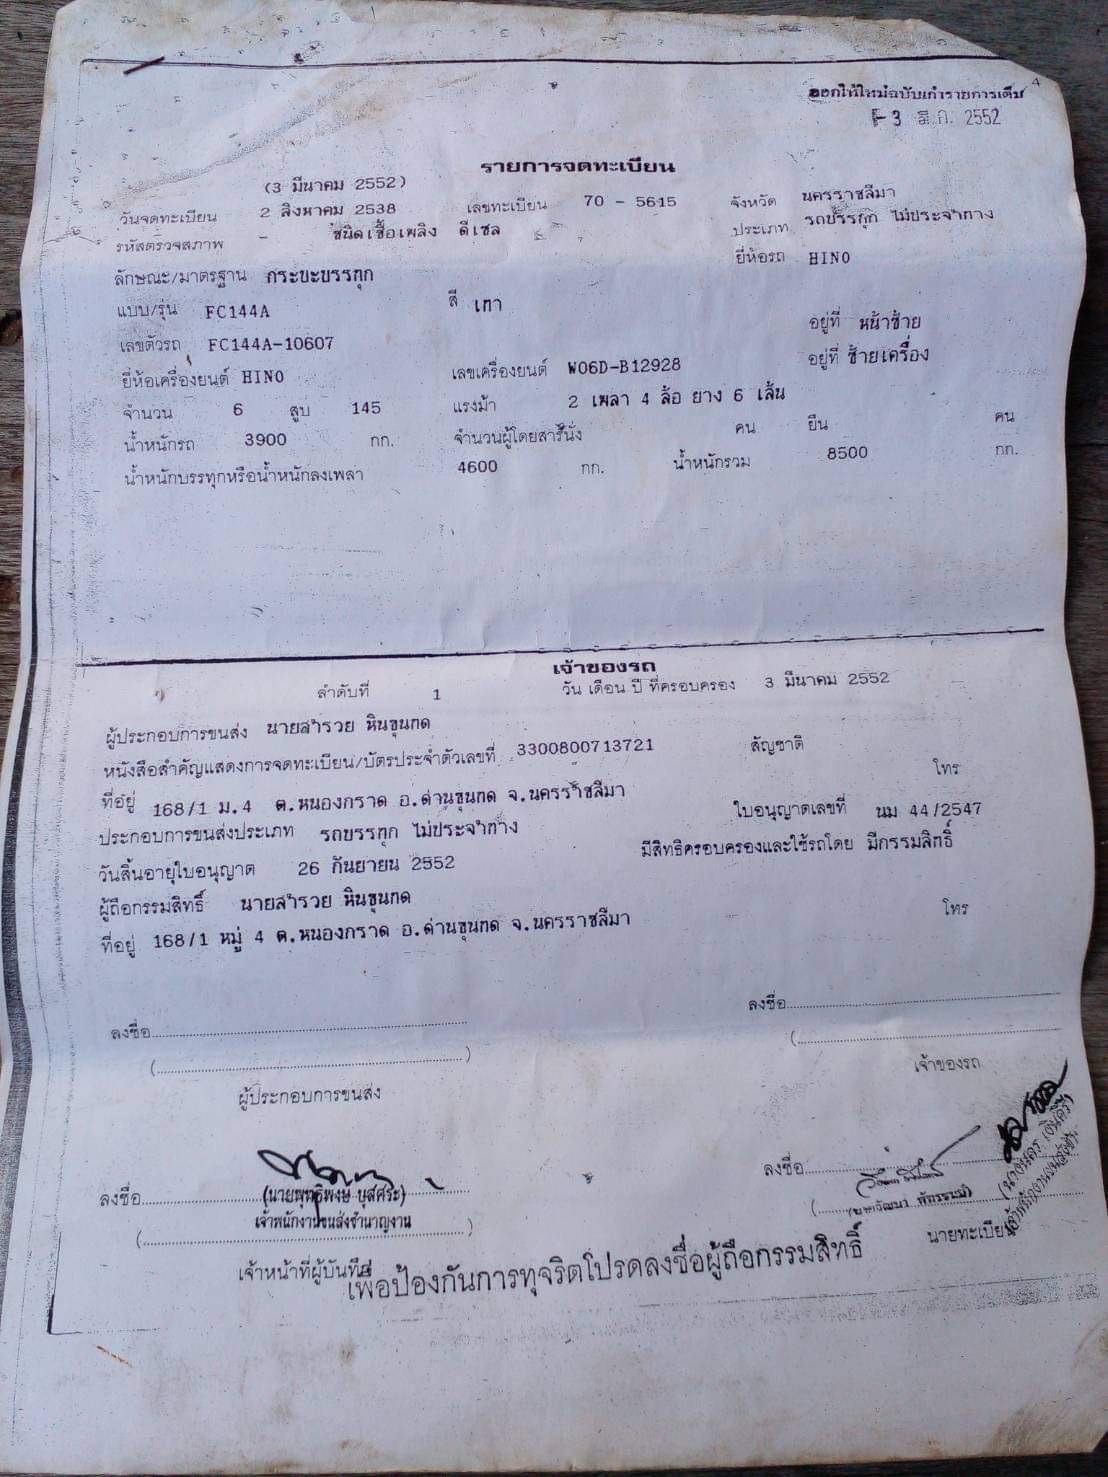 ออกให้ใหม่ฉบับเก่ารายการเต็ม
- 3 มี.ค. 2552
รายการจดทะเบียน
(3 มีนาคม 2552)
วันจดทะเบียน 2 สิงหาคม 2538 เลขทะเบียน 70 - 5615 จังหวัด นครราชสีมา
รหัสตรวจสภาพ - ชนิดเชื้อเพลิง ดีเซล ประเภท รถบรรทุก ไม่ประจำทาง
ลักษณะ/มาตรฐาน กระบะบรรทุก ยี่ห้อรถ HINO
แบบ/รุ่น FC144A สี เทา
เลขตัวรถ FC144A-10607 อยู่ที่ หน้าซ้าย
ยี่ห้อเครื่องยนต์ HINO เลขเครื่องยนต์ W06D-B12928 อยู่ที่ ซ้ายเครื่อง
จำนวน 6 สูบ 145 แรงม้า 2 เพลา 4 ล้อ ยาง 6 เส้น
น้ำหนักรถ 3900 กก. จำนวนผู้โดยสารนั่ง คน ยืน คน
น้ำหนักบรรทุกหรือน้ำหนักลงเพลา 4600 กก. น้ำหนักรวม 8500 กก.
เจ้าของรถ
ลำดับที่ 1 วัน เดือน ปี ที่ครอบครอง 3 มีนาคม 2552
ผู้ประกอบการขนส่ง นายสำรวย หินขุนทด
หนังสือสำคัญแสดงการจดทะเบียน/บัตรประจำตัวเลขที่ 3300800713721 สัญชาติ
ที่อยู่ 168/1 ม.4 ต.หนองกราด อ.ด่านขุนทด จ.นครราชสีมา โทร
ประกอบการขนส่งประเภท รถบรรทุก ไม่ประจำทาง ใบอนุญาตเลขที่ นม 44/2547
วันสิ้นอายุใบอนุญาต 26 กันยายน 2552 มีสิทธิครอบครองและใช้รถโดย มีกรรมสิทธิ์
ผู้ถือกรรมสิทธิ์ นายสำรวย หินขุนทด
ที่อยู่ 168/1 หมู่ 4 ต.หนองกราด อ.ด่านขุนทด จ.นครราชสีมา โทร
ลงชื่อ ลงชื่อ
( ) (
ผู้ประกอบการขนส่ง เจ้าของรถ
ลงชื่อ ลงชื่อ
(นายพุทธิพงษ์ บุสศิระ)
เจ้าพนักงานขนส่งชำนาญงาน
เจ้าหน้าที่ผู้บันทึก นายทะเบียน
เพื่อป้องกันการทุจริตโปรดลงชื่อผู้ถือกรรมสิทธิ์